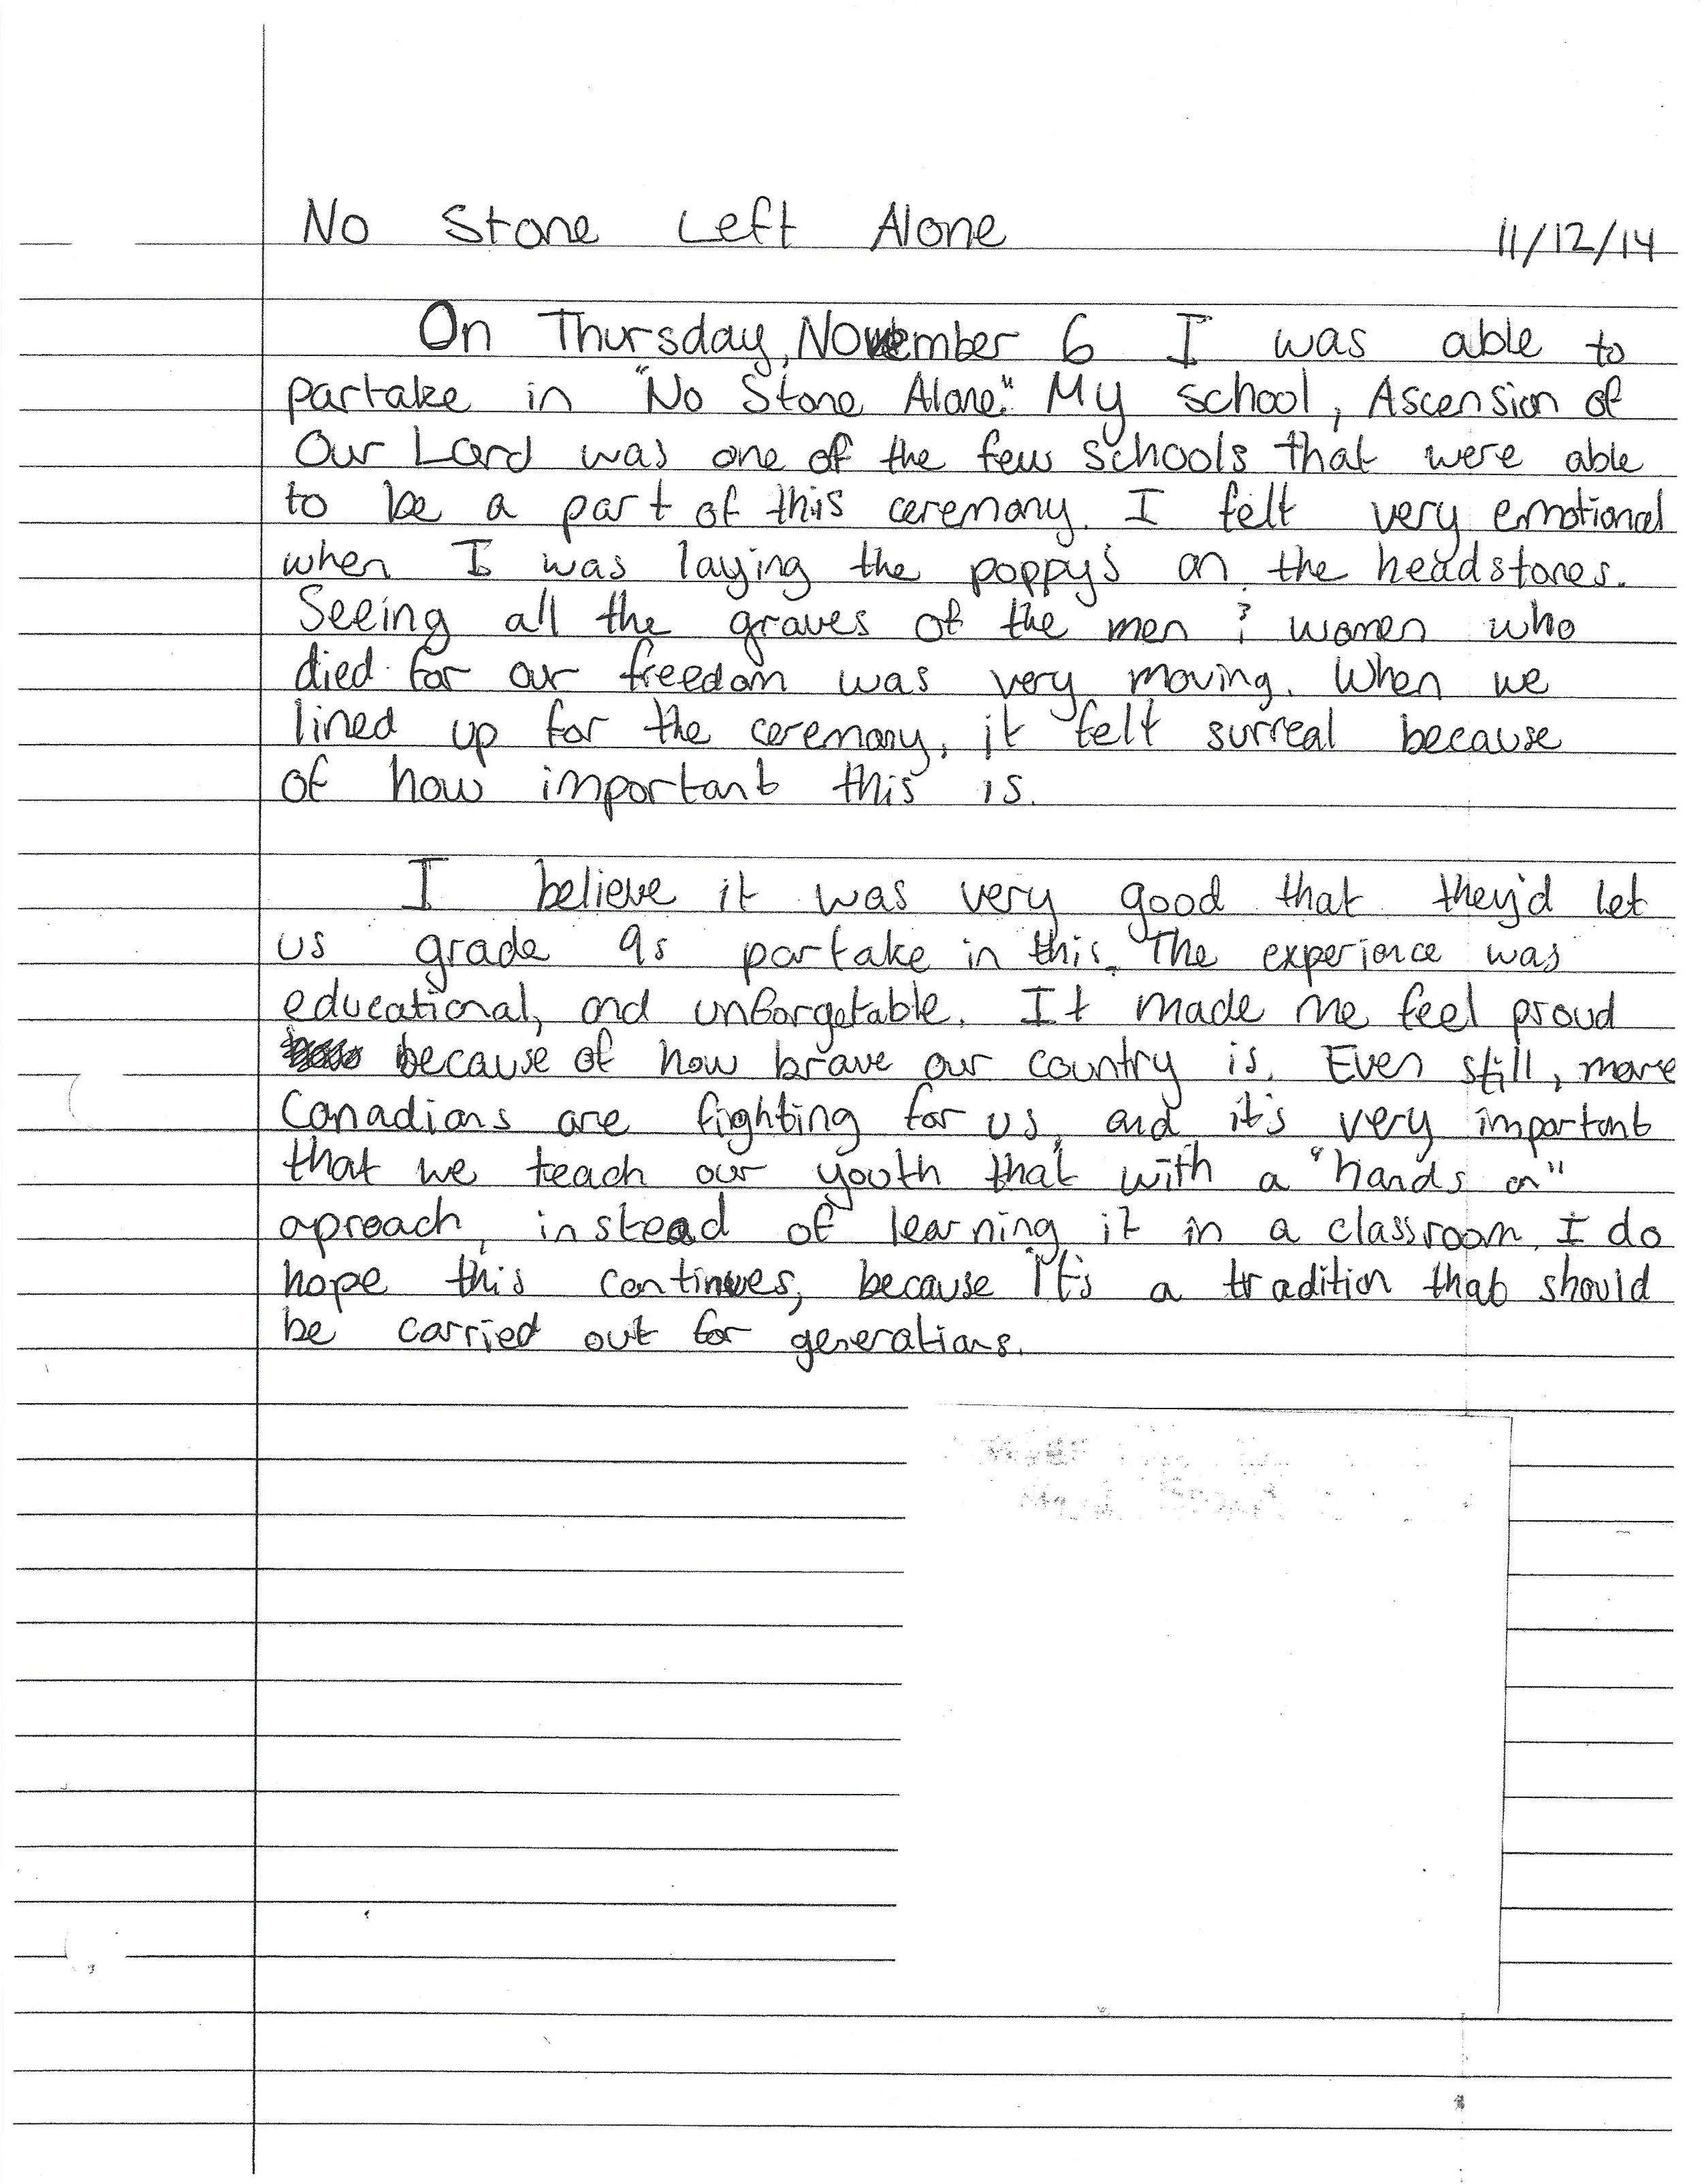 No Stone Left Alone 11/12/14
On Thursday, November 6 I was able to
partake in "No Stone Alone." My school, Ascension of
Our Lord was one of the few schools that were able
to be a part of this ceremony. I felt very emotional
when I was laying the poppy's on the headstones.
Seeing all the graves of the men & women who
died for our freedom was very moving. When we
lined up for the ceremony, it felt surreal because
of how important this is.
I believe it was very good that they'd let
us grade 9s partake in this. The experience was
educational, and unforgetable. It made me feel proud
because of how brave our country is. Even still, more
Canadians are fighting for us, and it's very important
that we teach our youth that with a "hands on"
aproach, instead of learning it in a classroom. I do
hope this continues, because it's a tradition that should
be carried out for generations.